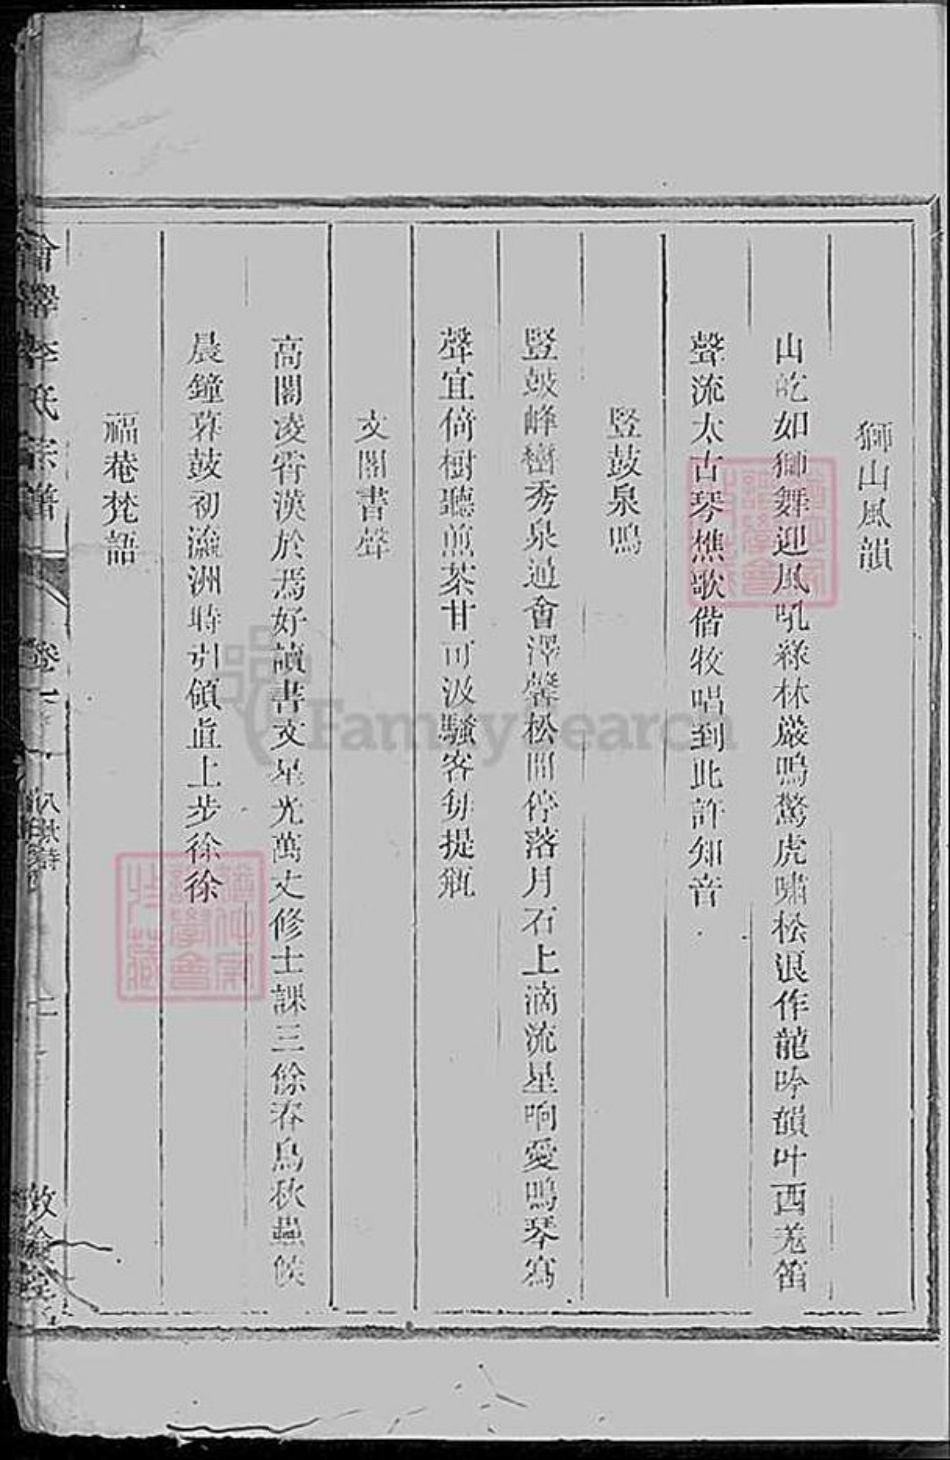 獅山風韻
山乾如獅舞迎風吼綠林巖鳴驚虎嘯松浪作龍吟韻叶西羌笛
聲流太古琴樵歌偕牧唱到此許知音
竪鼓泉鳴
竪鼓峰巒秀泉通會澤馨松間停落月石上滴流星响愛鳴琴寫
聲宜倚樹聽煎茶甘可汲騷客每提瓶
文閣書聲
高閣凌霄漢於焉好讀書文星光萬丈修士課三餘春鳥秋蟲候
晨鐘暮鼓初瀛洲時引領直上步徐徐
福菴梵語
澤李氏宗譜
卷一
八秋詩
FamilySearch